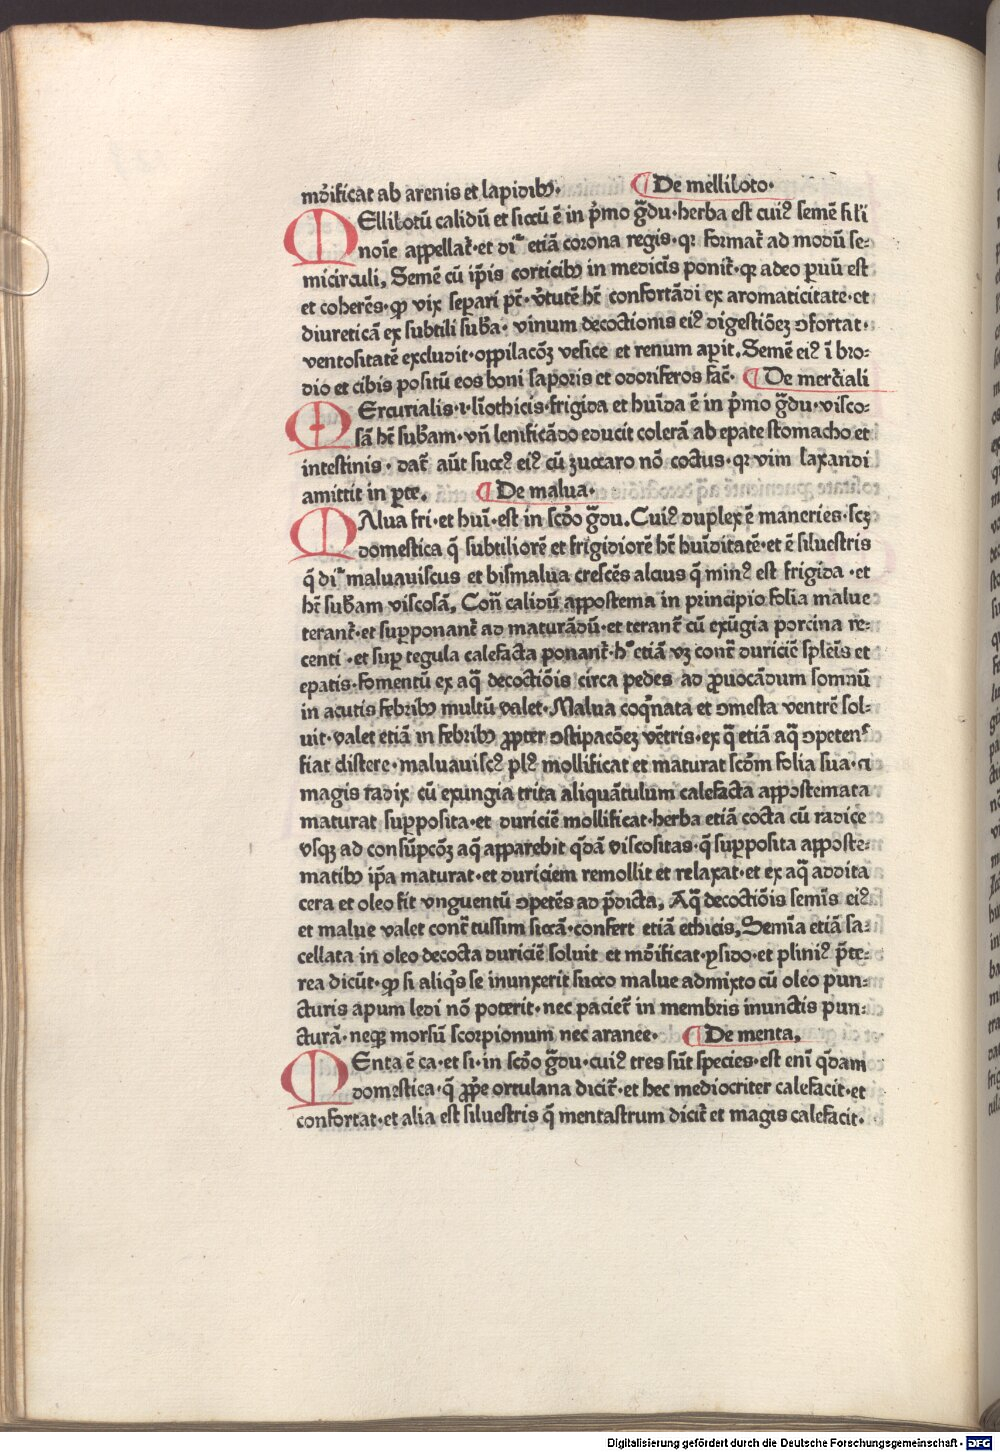 mūdificat ab arenis et lapidibꝰ. ¶ De melliloto.
MEllilotū calidū et siccū ē in p̄mo g̃du. herba est cuiꝰ semē sili
noīe appellat᷑. et di᷑ etiā corona regis. qꝛ format᷑ ad modū se⸗
micirculi, Semē cū ip̄is corticibꝰ in medicis ponit᷑. qꝛ adeo paruū est
et coherēs. ꝙ vix separi pt̄. v̄tutē hꝫ confortādi ex aromaticitate. et
diureticā ex subtili sub̄a. vinum decoctionis eiꝰ digestiōeꝫ ↄfortat.
ventositatē excludit. oppilacōꝫ vesice et renum aperit. Semē eiꝰ ī bro⸗
dio et cibis positū eos boni saporis et odoriferos fac̄. ¶ De mercūali
MErcurialis .i. līothicis. frigida et hūida ē in p̄mo g̃du. visco⸗
sā hꝫ sub̄am. vn̄ lenificādo educit colerā ab epate stomacho et
intestinis. dat᷑ aūt succꝰ eiꝰ cū zuccaro nō coctus. qꝛ vim laxandi
amittit in ꝑte. ¶ De malua.
MAlua fri. et hūi. est in scḋo g̃du. Cuiꝰ duplex ē maneries. scꝫ
domestica q̄ subtiliorē et frigidiorē hꝫ hūiditatē. et ē siluestris
q̄ di᷑ maluauiscus et bismalua crescēs alcius q̄ minꝰ est frigida. et
hꝫ sub̄am viscosā, Con̄ calidū appostema in principio folia malue
terant᷑. et supponant᷑ ad maturādū. et terant᷑ cū exūgia porcina re⸗
centi. et suꝑ tegula calefacta ponant᷑. hᵒ etiā vꝫ cont̃ duriciē splenis et
epatis. fomentū ex aq̄ decoctiōis circa pedes ad ꝓuocādum somnū
in acutis febribꝰ multū valet. Malua coq̄nata et ↄmesta ventrē sol⸗
uit. valet etiā in febribꝰ ꝓpter ↄstipacōeꝫ vētris. ex q̄ etiā aq̄ ↄpetenˢ
fiat clistere. maluauiscꝰ plꝰ mollificat et maturat scḋm folia sua. ⁊
magis radix cū exungia trita aliquātulum calefacta appostemata
maturat supposita. et duriciē mollificat. herba etiā cocta cū radice
vsqꝫ ad consūpcōꝫ aq̄ apparebit q̄dā viscositas. q̄ supposita apposte⸗
matibꝰ ip̄a maturat. et duriciem remollit et relaxat. et ex aq̄ addita
cera et oleo fit vnguentū ↄpetēs ad p̄dicta, Aq̄ decoctiōis semīs eiꝰ
et malue valet cont̃ tussim siccā. confert etiā ethicis, Semīa etiā sa⸗
cellata in oleo decocta duriciē soluit et mūdificat. ysido. et pliniꝰ p̄te⸗
rea dicūt. ꝙ si aliqͥs se inunxerit succo malue admixto cū oleo pun⸗
cturis apum ledi nō poterit. nec paciet᷑ in membris inunctis pun⸗
cturā. neqꝫ morsū scorpionum nec aranee. ¶ De menta,
MEnta ē ca. et si. in scḋo g̃du. cuiꝰ tres sūt species. est enī q̄dam
domestica. q̄ ꝓp̄e ortulana dicit᷑. et hec mediocriter calefacit. et
confortat. et alia est siluestris q̄ mentastrum dicit᷑ et magis calefacit.
Digitalisierung gefördert durch die Deutsche Forschungsgemeinschaft - DFG